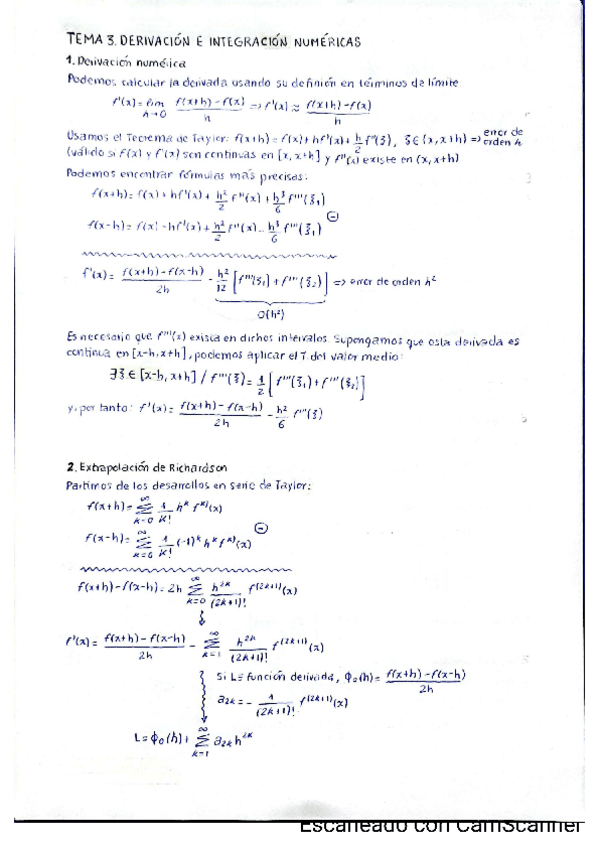 TEMA 3. DERIVACIÓN E INTEGRACIÓN NUMÉRICAS
1. Derivación numérica
Podemos calcular la derivada usando su definión en términos de límite
f'(x) = lim h→0 (f(x+h) - f(x))/h => f'(x) ≈ (f(x+h) - f(x))/h
Usamos el Teorema de Taylor: f(x+h) = f(x) + hf'(x) + h/2 f''(ξ), ξ ∈ (x, x+h) => error de orden h
(válido si f(x) y f'(x) son continuas en [x, x+h] y f''(x) existe en (x, x+h)
Podemos encontrar fórmulas más precisas:
f(x+h) = f(x) + hf'(x) + h²/2 f''(x) + h³/6 f'''(ξ₁)
⊖
f(x-h) = f(x) - hf'(x) + h²/2 f''(x) - h³/6 f'''(ξ₁)
f'(x) = (f(x+h) - f(x-h))/2h - h²/12 [f'''(ξ₁) + f'''(ξ₂)] => error de orden h²
O(h²)
Es necesario que f'''(x) exista en dichos intervalos. Supongamos que esta derivada es
continua en [x-h, x+h], podemos aplicar el T. del valor medio:
∃ ξ ∈ [x-h, x+h] / f'''(ξ) = 1/2 [f'''(ξ₁) + f'''(ξ₂)]
y, por tanto: f'(x) = (f(x+h) - f(x-h))/2h - h²/6 f'''(ξ)
2. Extrapolación de Richardson
Partimos de los desarrollos en serie de Taylor:
f(x+h) = ∑_{k=0}^{∞} 1/k! h^k f^{k)}(x)
⊖
f(x-h) = ∑_{k=0}^{∞} 1/k! (-1)^k h^k f^{k)}(x)
f(x+h) - f(x-h) = 2h ∑_{k=0}^{∞} h^{2k}/(2k+1)! f^{(2k+1)}(x)
f'(x) = (f(x+h) - f(x-h))/2h - ∑_{k=1}^{∞} h^{2k}/(2k+1)! f^{(2k+1)}(x)
Si L ≡ función derivada, ϕ₀(h) = (f(x+h) - f(x-h))/2h
a_{2k} = - 1/(2k+1)! f^{(2k+1)}(x)
L = ϕ₀(h) + ∑_{k=1}^{∞} a_{2k} h^{2k}
Escaneado con CamScanner